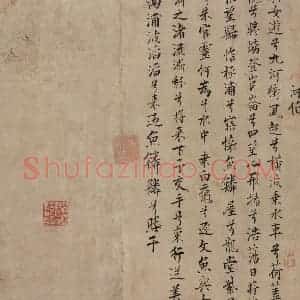 河伯
女遊兮九河衝風起兮橫波乘水車兮荷蓋
兮驂螭登崑崙兮四望心飛揚兮浩蕩日將
忘歸惟極浦兮寤懷魚鱗屋兮龍堂紫
兮朱宮靈何為兮水中乘白黿兮逐文魚與
河之渚流澌紛兮將來下子交手兮東行送美
南浦波滔滔兮來迎魚鱗鱗兮媵予